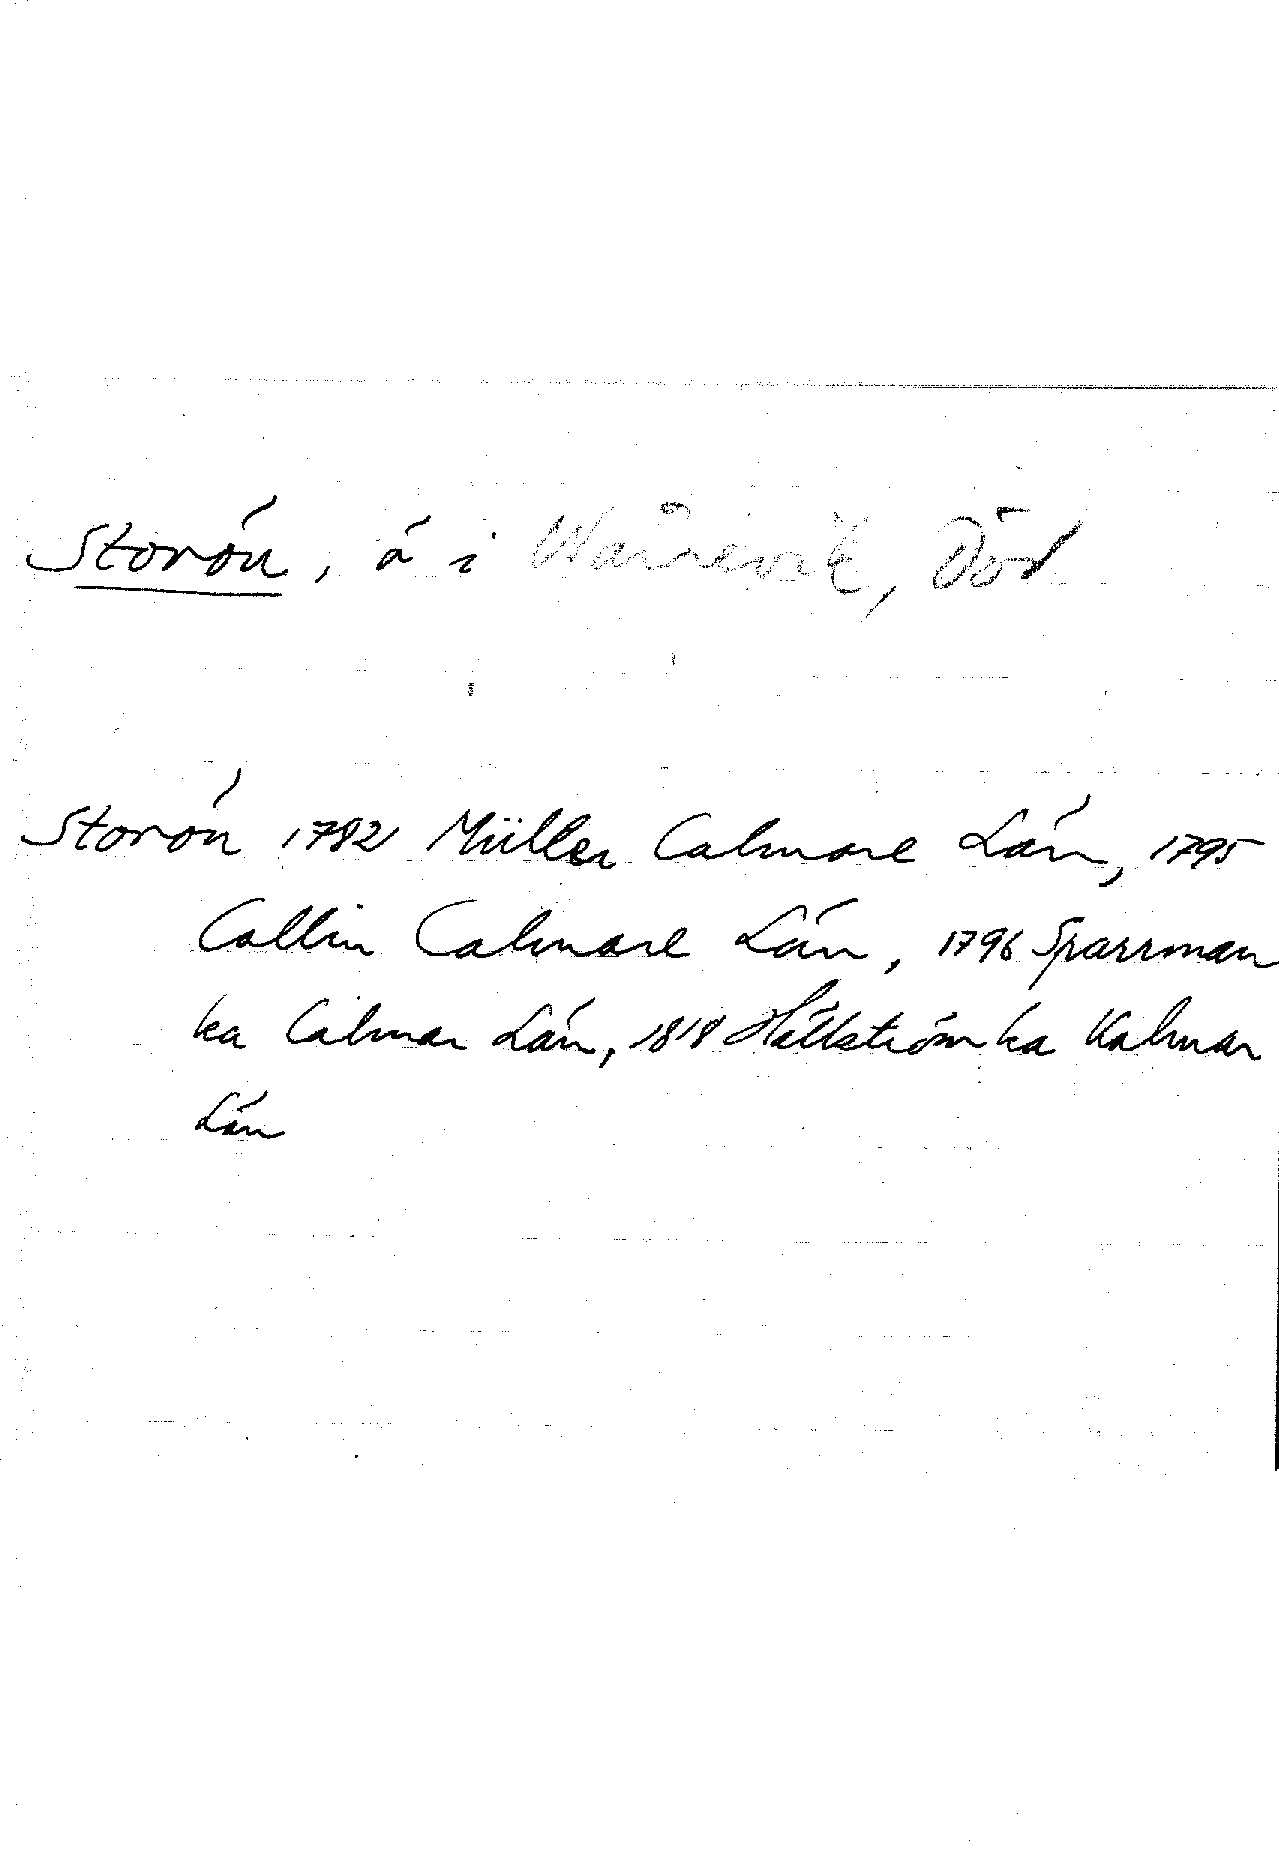 Storön, ö i Wånevik, Död
Storön 1782 Müller Calmare Län, 1795
Collin Calmare Län, 1796 Sparrman
ka Calmar Län, 1818 Hällström ka Kalmar
Län